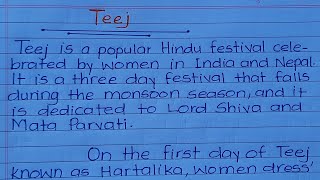 Teej
Teej is a popular Hindu festival cele-
brated by women in India and Nepal.
It is a three day festival that falls
during the monsoon season, and it
is dedicated to Lord Shiva and
Mata Parvati.
On the first day of Teej
known as Hartalika, women dress'